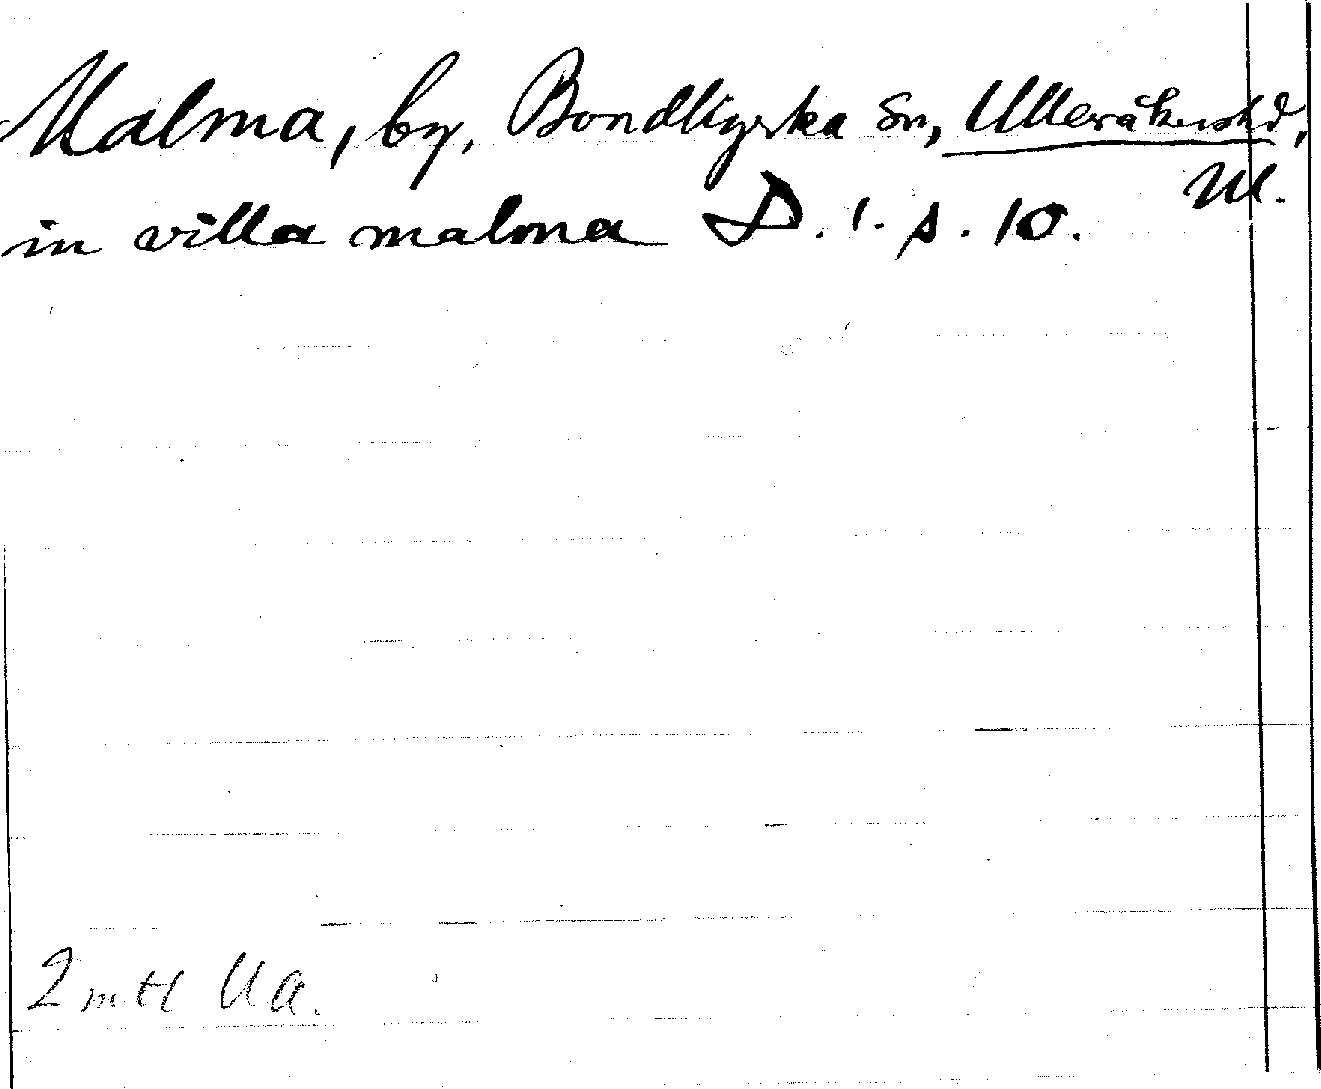 Malma, by, Bondkyrka sn, Ulleråkers hd,
Ul.
in villa malma D. 1. s. 10.
2 mtl Ua.